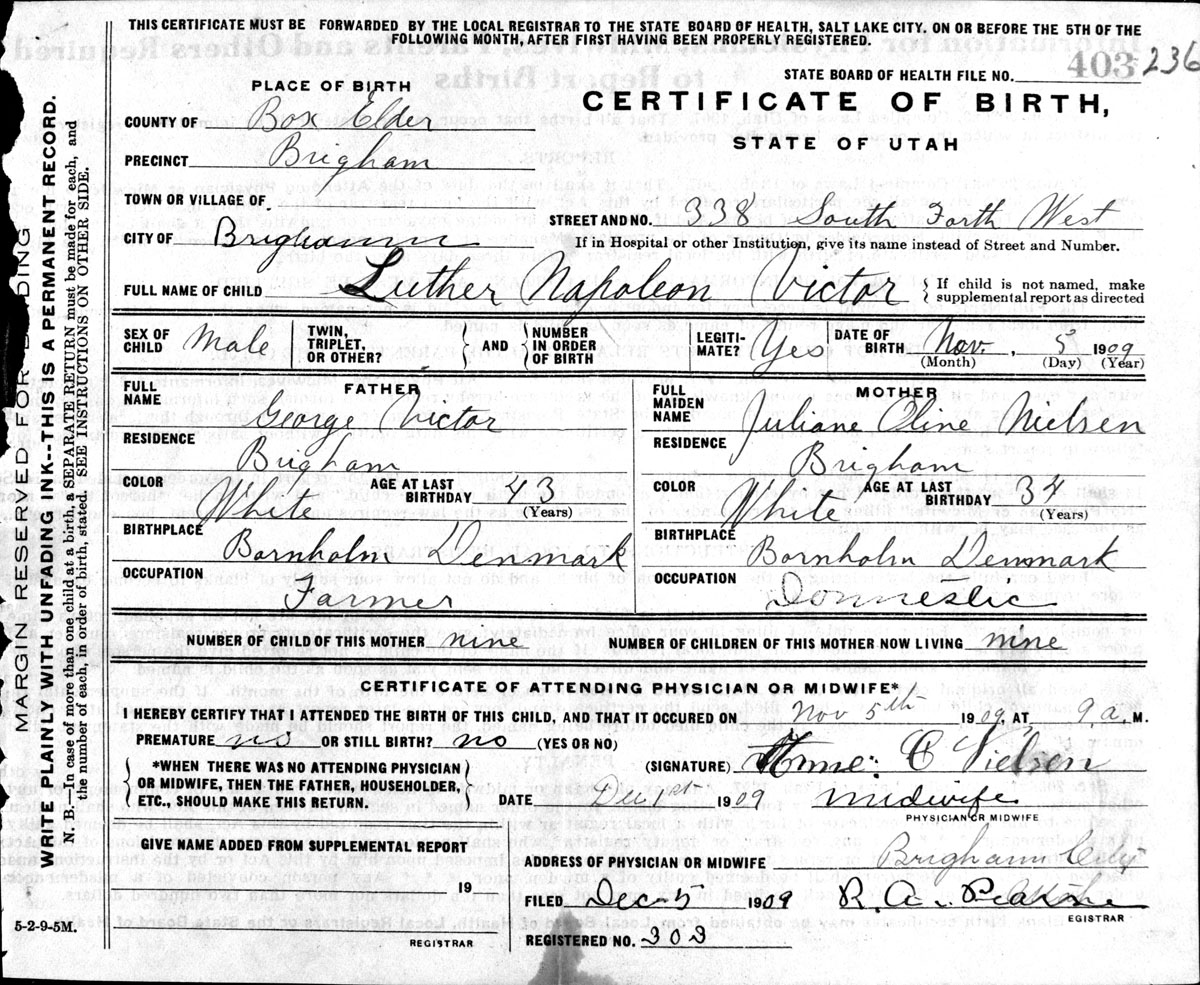 THIS CERTIFICATE MUST BE FORWARDED BY THE LOCAL REGISTRAR TO THE STATE BOARD OF HEALTH, SALT LAKE CITY, ON OR BEFORE THE 5TH OF THE
FOLLOWING MONTH, AFTER FIRST HAVING BEEN PROPERLY REGISTERED.
STATE BOARD OF HEALTH FILE NO. 403 236
PLACE OF BIRTH
CERTIFICATE OF BIRTH,
STATE OF UTAH
COUNTY OF Box Elder
PRECINCT Brigham
TOWN OR VILLAGE OF
STREET AND NO. 338 South Forth West
CITY OF Brigham
If in Hospital or other Institution, give its name instead of Street and Number.
FULL NAME OF CHILD Luther Napoleon Victor { If child is not named, make
supplemental report as directed
SEX OF CHILD Male TWIN, TRIPLET, OR OTHER? } AND { NUMBER IN ORDER OF BIRTH LEGITI- MATE? Yes DATE OF BIRTH Nov. , 5 1909
(Month) (Day) (Year)
FATHER
FULL NAME George Victor
RESIDENCE Brigham
COLOR White AGE AT LAST BIRTHDAY 43
(Years)
BIRTHPLACE Bornholm Denmark
OCCUPATION Farmer
MOTHER
FULL MAIDEN NAME Juliane Oline Nielsen
RESIDENCE Brigham
COLOR White AGE AT LAST BIRTHDAY 34
(Years)
BIRTHPLACE Bornholm Denmark
OCCUPATION Domnestic
NUMBER OF CHILD OF THIS MOTHER nine NUMBER OF CHILDREN OF THIS MOTHER NOW LIVING nine
CERTIFICATE OF ATTENDING PHYSICIAN OR MIDWIFE*
I HEREBY CERTIFY THAT I ATTENDED THE BIRTH OF THIS CHILD, AND THAT IT OCCURED ON Nov 5th 1909, AT 9 a. M.
PREMATURE no OR STILL BIRTH? no (YES OR NO)
*WHEN THERE WAS NO ATTENDING PHYSICIAN
OR MIDWIFE, THEN THE FATHER, HOUSEHOLDER,
ETC., SHOULD MAKE THIS RETURN.
(SIGNATURE) C Nielsen
DATE 1909 midwife
PHYSICIAN OR MIDWIFE
GIVE NAME ADDED FROM SUPPLEMENTAL REPORT
19
REGISTRAR
ADDRESS OF PHYSICIAN OR MIDWIFE Brigham City
FILED Dec 5 1909 R. A.
EGISTRAR
REGISTERED NO. 303
5-2-9-5M.
MARGIN RESERVED FOR BINDING
WRITE PLAINLY WITH UNFADING INK--THIS IS A PERMANENT RECORD.
N. B.--In case of more than one child at a birth, SEPARATE RETURN must be made for each, and
the number of each, in order of birth, stated. SEE INSTRUCTIONS ON OTHER SIDE.